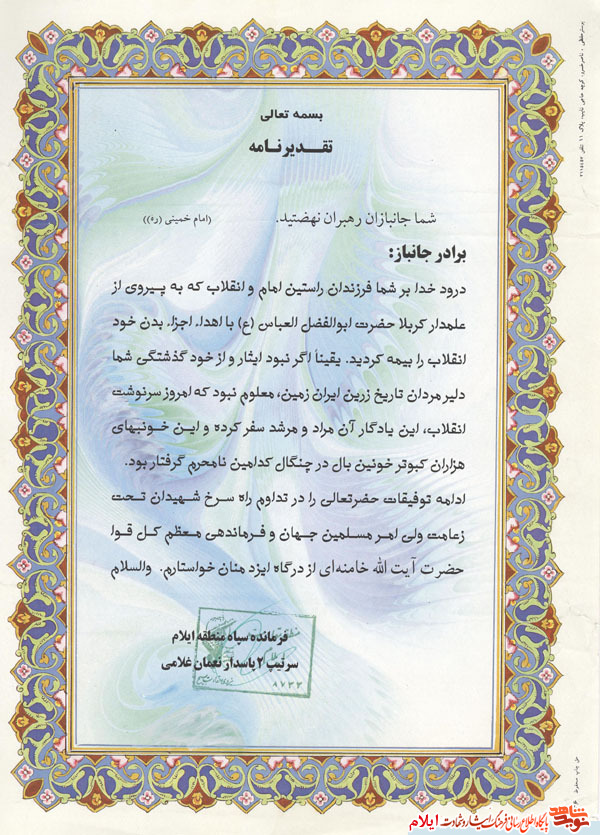 بسمه تعالی
تقدیرنامه
شما جانبازان رهبران نهضتید. (امام خمینی (ره))
برادر جانباز:
درود خدا بر شما فرزندان راستین امام و انقلاب که به پیروی از
علمدار کربلا حضرت ابوالفضل العباس (ع) با اهداء اجزاء بدن خود
انقلاب را بیمه کردید. یقیناً اگر نبود ایثار و از خود گذشتگی شما
دلیر مردان تاریخ زرین ایران زمین، معلوم نبود که امروز سرنوشت
انقلاب، این یادگار آن مراد و مرشد سفر کرده و این خونبهای
هزاران کبوتر خونین بال در چنگال کدامین نامحرم گرفتار بود.
ادامه توفیقات حضرتعالی را در تداوم راه سرخ شهیدان تحت
زعامت ولی امر مسلمین جهان و فرماندهی معظم کل قوا
حضرت آیت الله خامنه‌ای از درگاه ایزد منان خواستارم. والسلام
فرمانده سپاه منطقه ایلام
سرتیپ ۲ پاسدار نعمان غلامی
۸۷۳۳
حق چاپ محفوظ
نوید شاهد
پایگاه اطلاع رسانی فرهنگ ایثار و شهادت ایلام